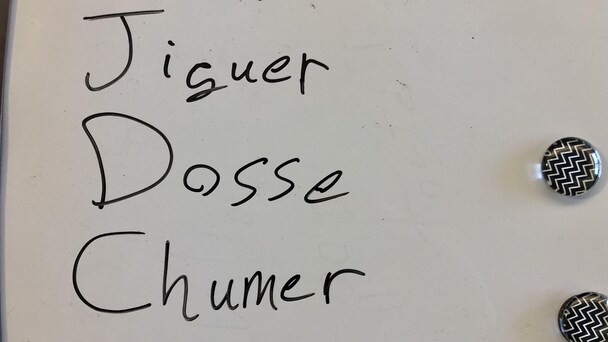 Jiguer
Dosse
Chumer